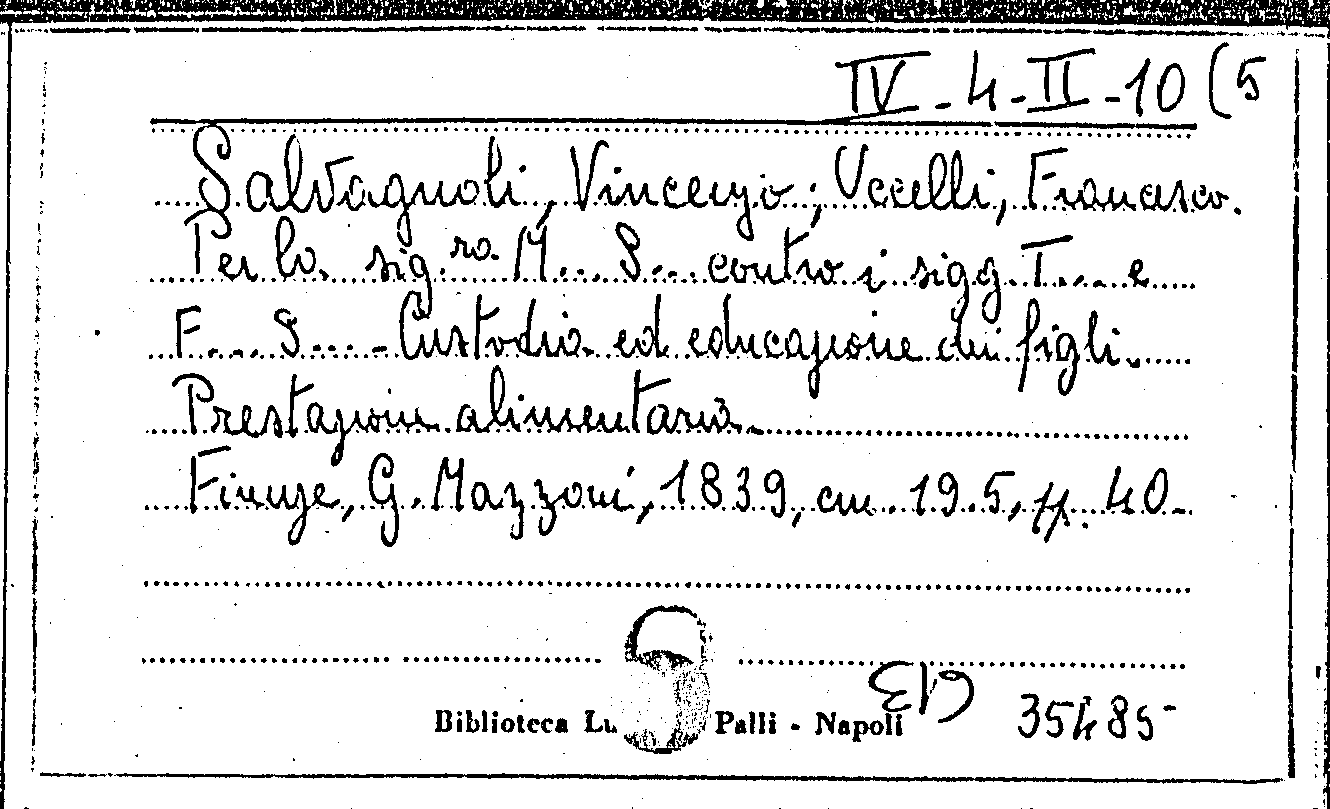 IV-4-II-10(5
Salvagnoli, Vincenzo; Uccelli, Francesco.
Per la sig.ra M... S... contro i sigg. T.... e
F.... S.... - Custodia ed educazione dei figli.
Prestazione alimentaria.-
Firenze, G. Mazzoni, 1839, cm. 19.5, pp. 40.-
Biblioteca Lu Palli - Napoli 35485